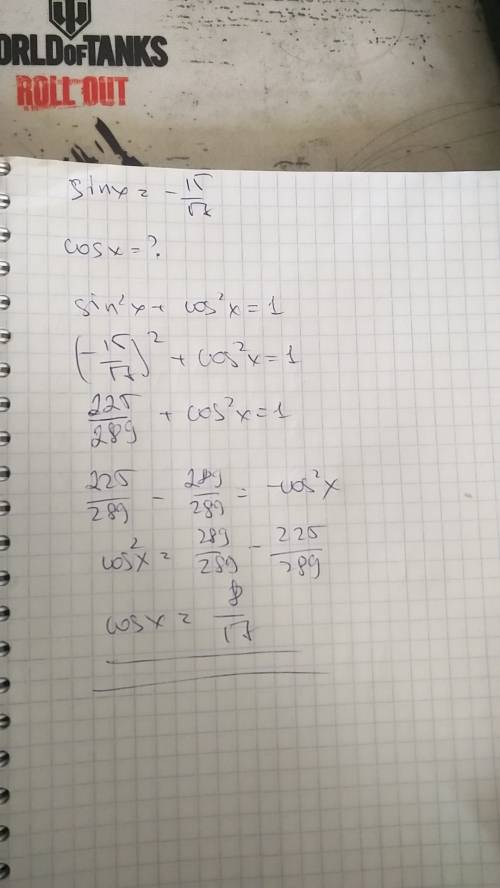 WORLD OF TANKS
ROLL OUT
sinx = -15/17
cosx = ?
sin²x + cos²x = 1
(-15/17)² + cos²x = 1
225/289 + cos²x = 1
225/289 - 289/289 = -cos²x
cos²x = 289/289 - 225/289
cosx = 8/17